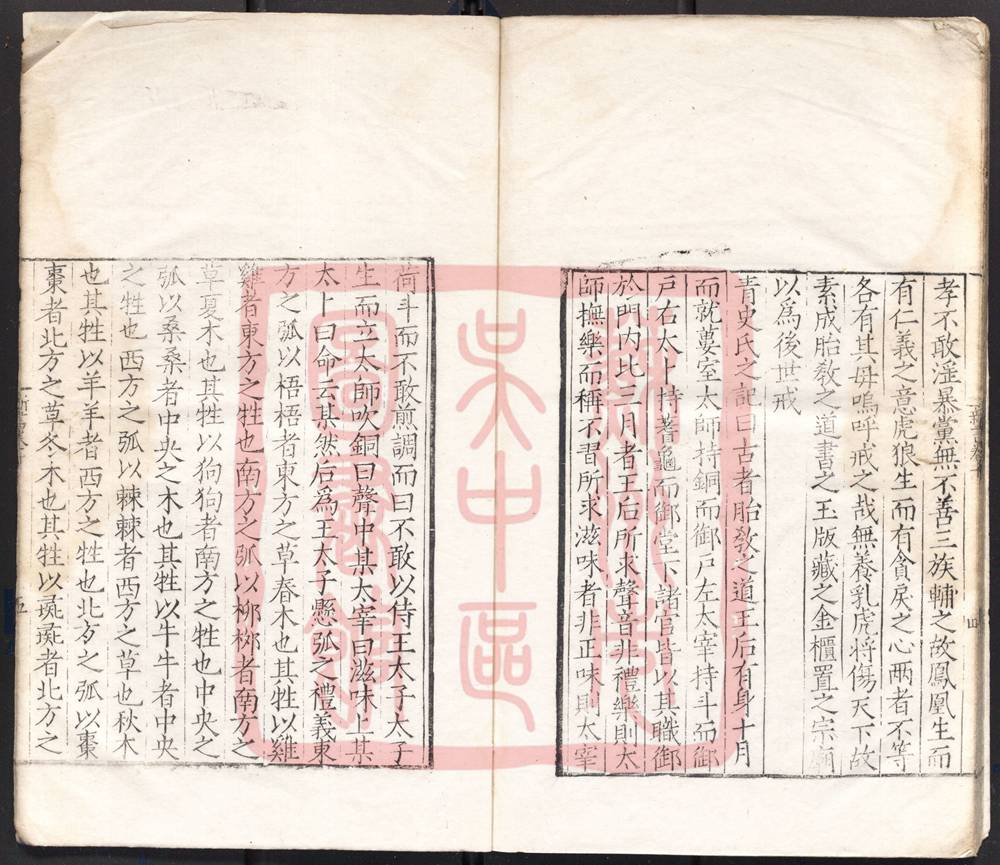 孝不敢淫暴黨無不善三族輔之故鳳凰生而
有仁義之意虎狼生而有貪戾之心兩者不等
各有其母嗚呼戒之哉無養乳虎將傷天下故
素成胎教之道書之玉版藏之金櫃置之宗廟
以為後世戒
青史氏之記曰古者胎教之道王后有身十月
而就蔞室太師持銅而御戶左太宰持斗而御
戶右太卜持蓍龜而御堂下諸官皆以其職御
於門內比三月者王后所求聲音非禮樂則太
師撫樂而稱不習所求滋味者非正味則太宰
荷斗而不敢煎調而曰不敢以侍王太子太子
生而立太師吹銅曰聲中某太宰曰滋味上某
太卜曰命云某然后為王太子懸弧之禮義東
方之弧以梧梧者東方之草春木也其牲以雞
雞者東方之牲也南方之弧以柳柳者南方之
草夏木也其牲以狗狗者南方之牲也中央之
弧以桑桑者中央之木也其牲以牛牛者中央
之牲也西方之弧以棘棘者西方之草也秋木
也其牲以羊羊者西方之牲也北方之弧以棗
棗者北方之草冬木也其牲以彘彘者北方之
五
吳中區